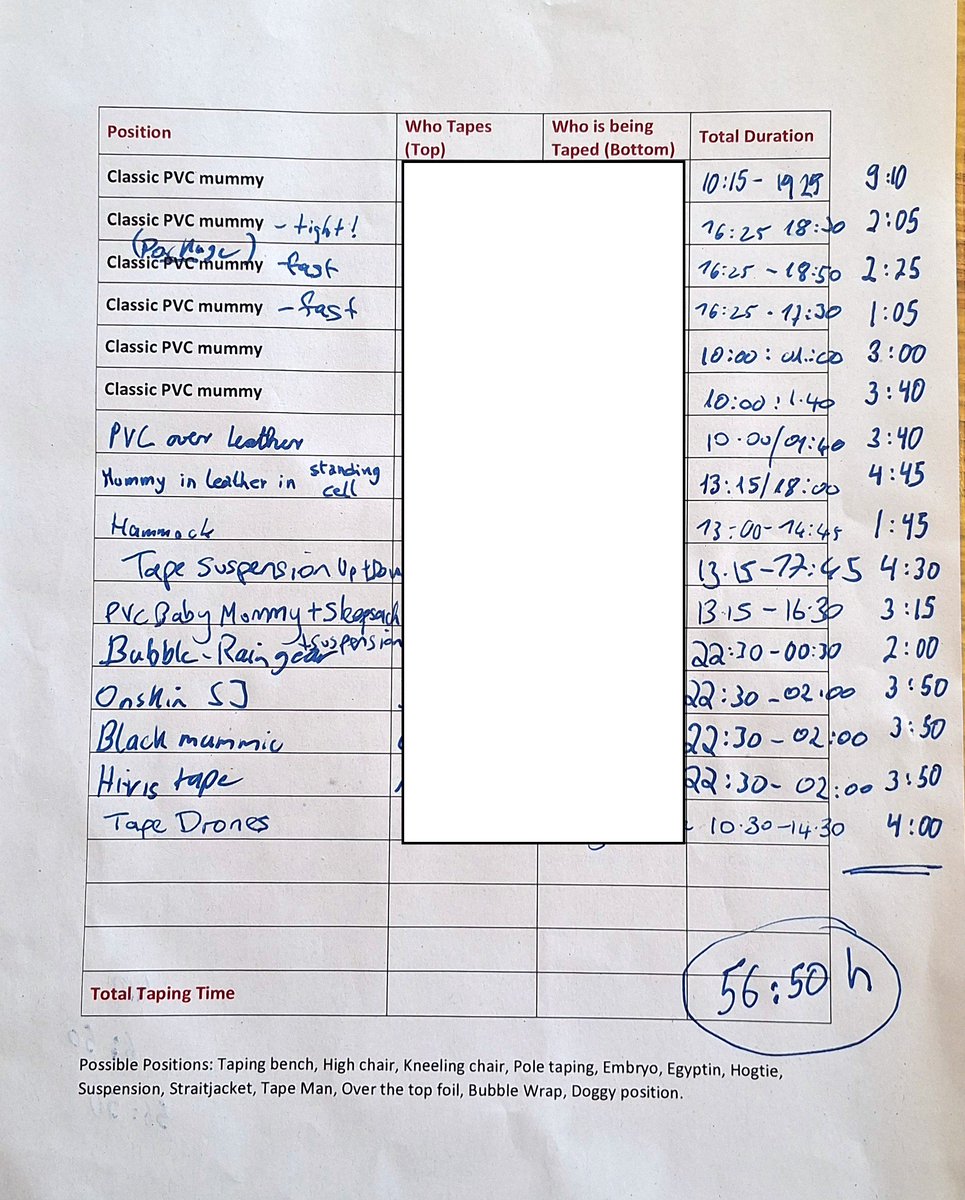 Position Who Tapes (Top) Who is being Taped (Bottom) Total Duration
Classic PVC mummy 10:15 - 19 25 9:10
Classic PVC mummy - tight! 16:25 18:30 2:05
(Package)
Classic PVC mummy fast 16:25 - 18:50 2:25
Classic PVC mummy - fast 16:25 - 17:30 1:05
Classic PVC mummy 10:00 : 01:00 3:00
Classic PVC mummy 10:00 : 1.40 3:40
PVC over leather 10.00/01:40 3:40
Mummy in leather in standing cell 13:15/18:00 4:45
Hammock 13:00-14:45 1:45
Tape Suspension Up + Down 13.15-17:45 4:30
PVC Baby Mommy + Sleepsack 13.15 - 16.30 3:15
+ suspension
Bubble - Rain gear 22:30-00:30 2:00
Onskin SJ 22:30-02:00 3:50
Black mummie 22:30-02:00 3:50
tape 22:30-02:00 3:50
Tape Drones 10.30-14.30 4:00
Total Taping Time 56:50 h
Possible Positions: Taping bench, High chair, Kneeling chair, Pole taping, Embryo, Egyptin, Hogtie,
Suspension, Straitjacket, Tape Man, Over the top foil, Bubble Wrap, Doggy position.